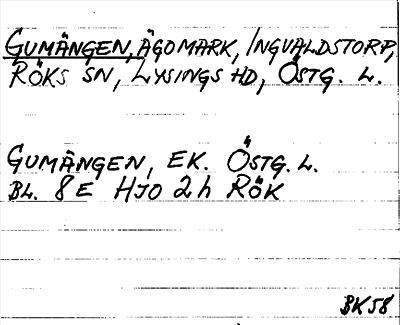 GUMÄNGEN, ÄGOMARK, INGVALDSTORP,
RÖKS SN, LYSINGS HD, ÖSTG. L.
GUMÄNGEN, EK. ÖSTG. L.
BL. 8E HJO 2h RÖK
BK58